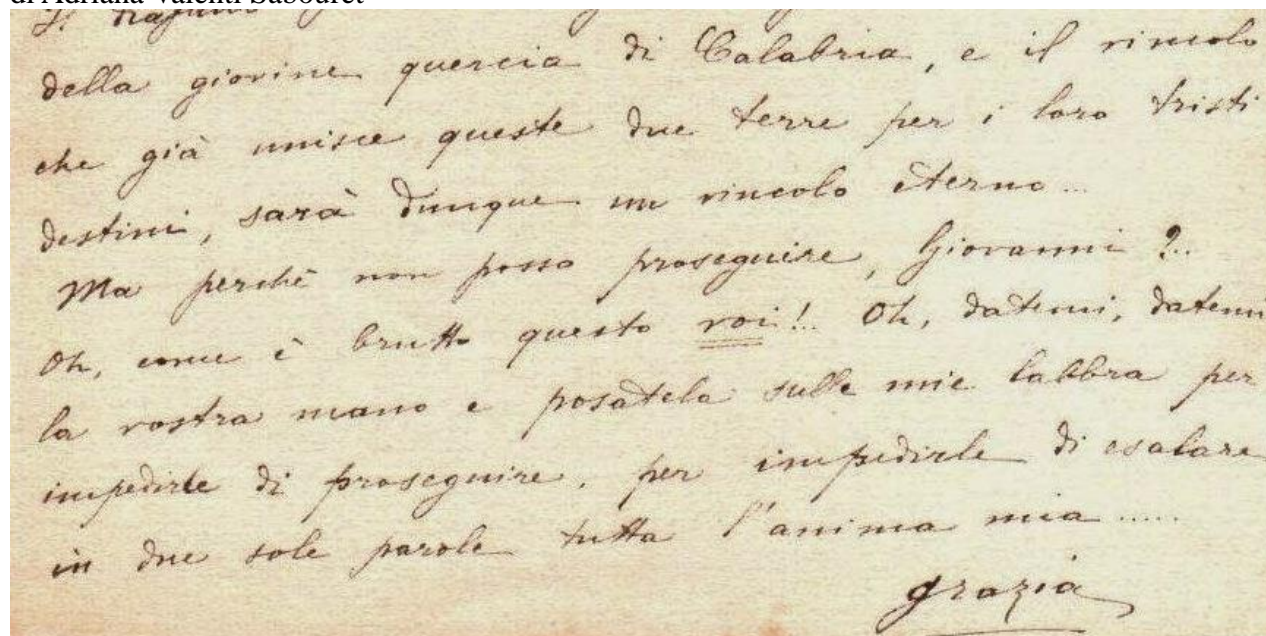 di Adriana Valenti Sabouret
della giovine quercia di Calabria, e il vincolo
che già unisce queste due terre per i loro tristi
destini, sarà dunque un vincolo eterno...
Ma perchè non posso proseguire, Giovanni?..
Oh, come è brutto questo voi!.. Oh, datemi, datemi
la vostra mano e posatela sulle mie labbra per
impedirle di proseguire, per impedirle di esalare
in due sole parole tutta l'anima mia.....
Grazia